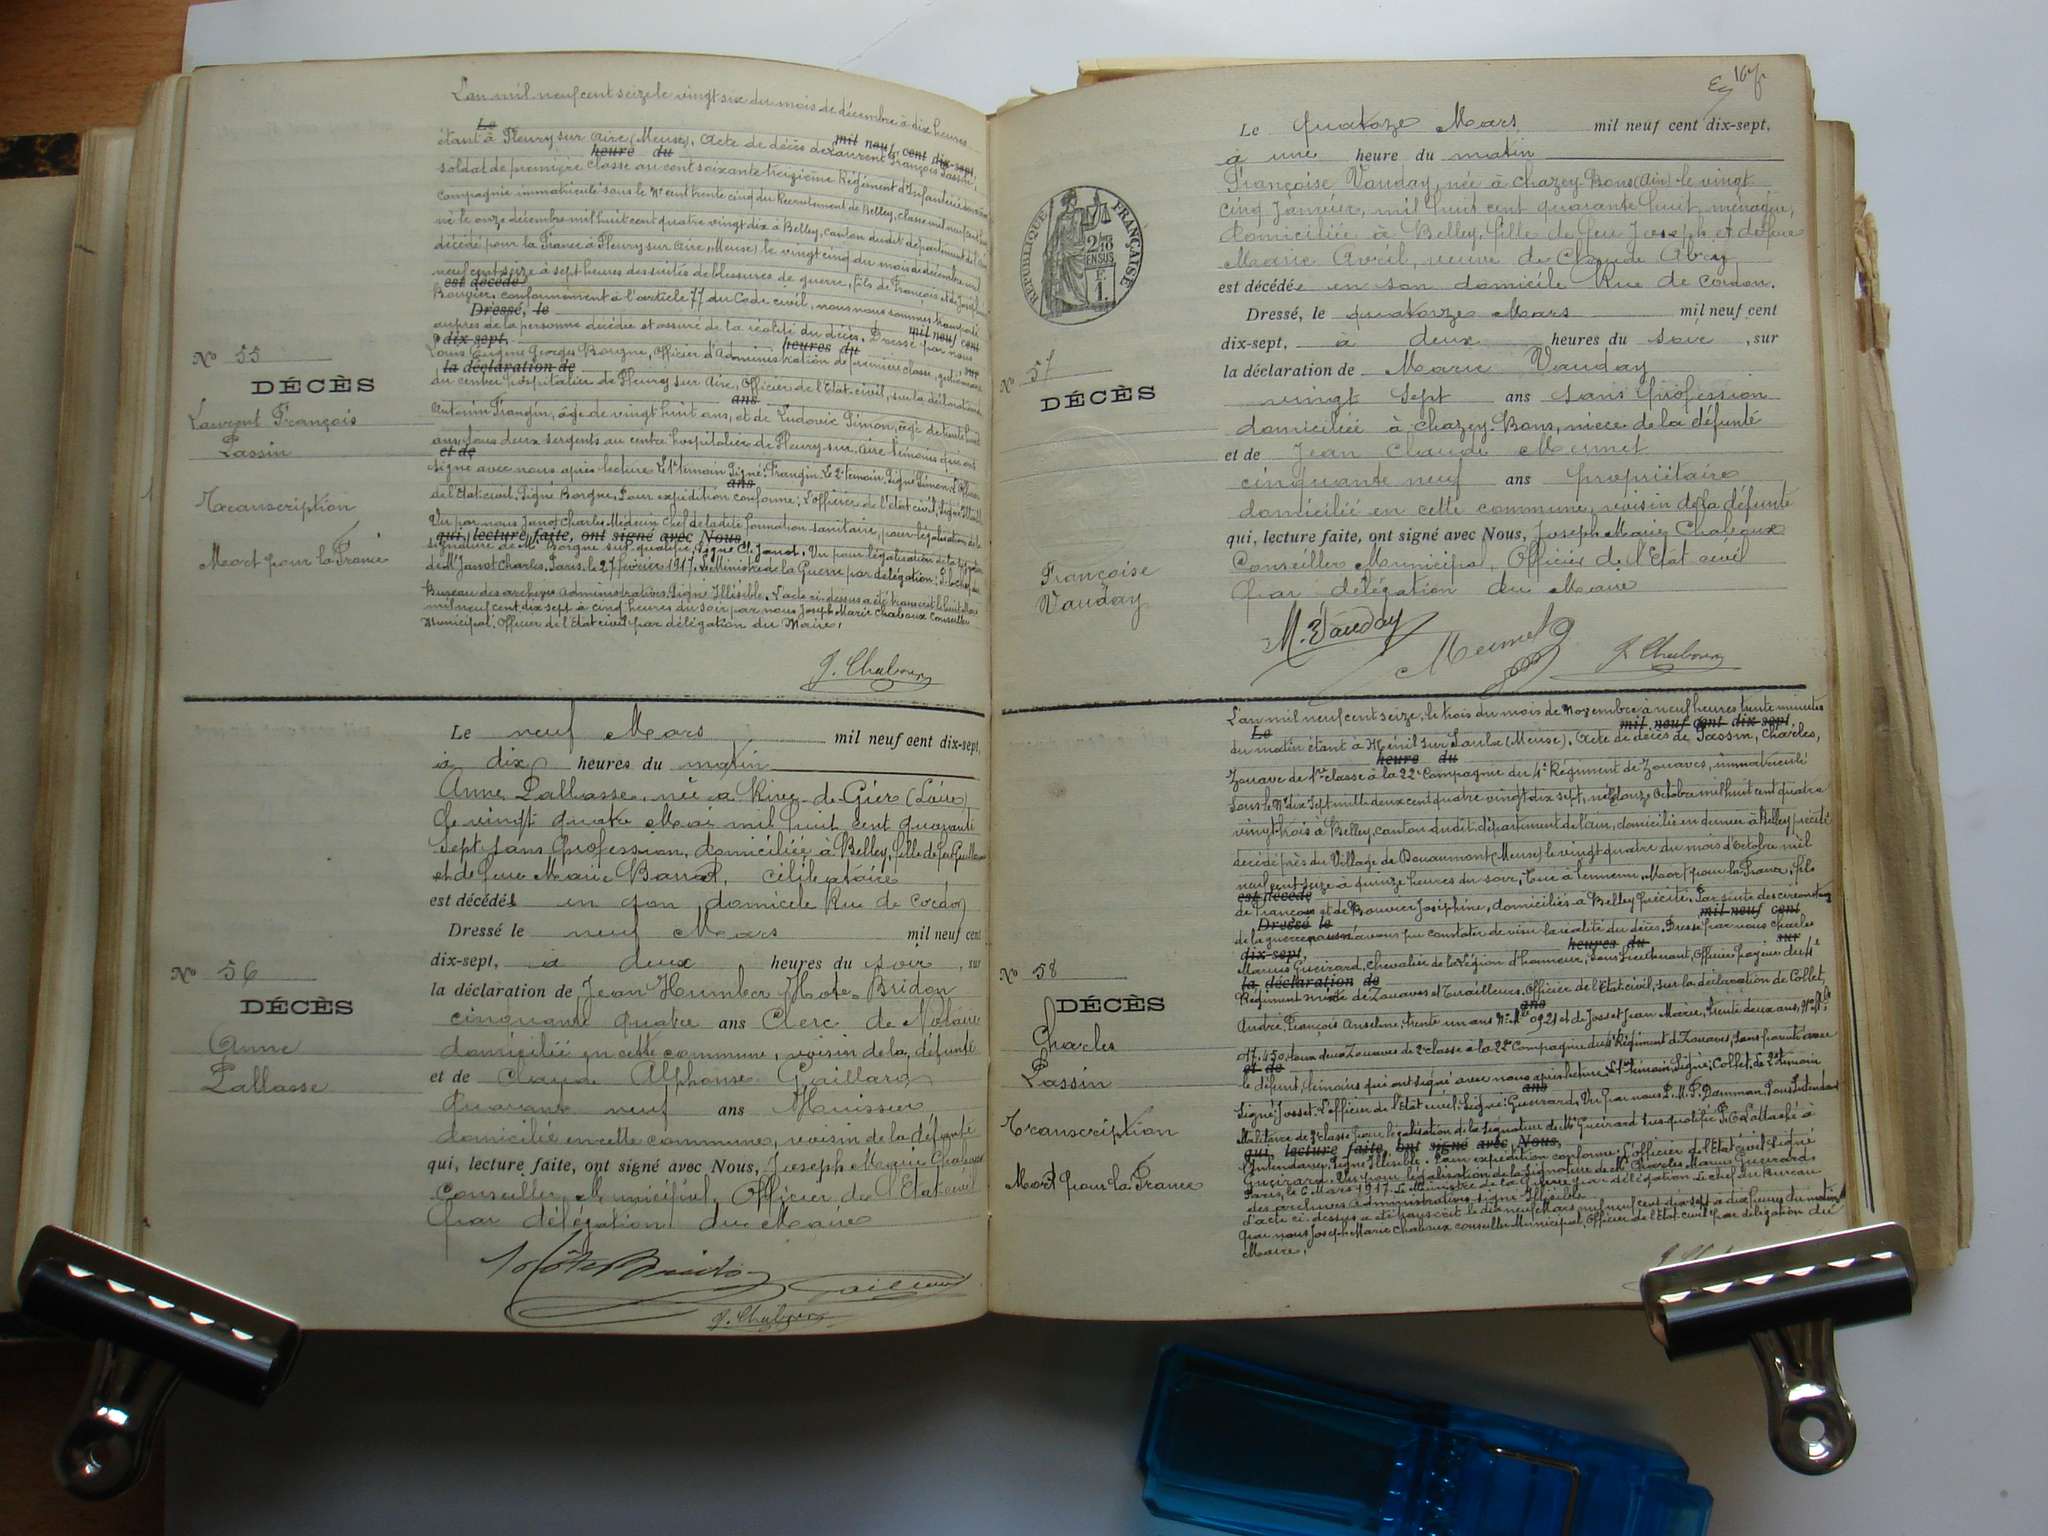 L'an mil neuf cent seize le vingt six du mois de décembre à dix heures
Le mil neuf cent dix-sept,
étant à Fleury sur Aire (Meuse). Acte de décès de Laurent François Lassin,
heure du
soldat de première classe au cent soixante treizième Régiment d'Infanterie
compagnie immatriculé sous le N° cent trente cinq du Recrutement de Belley, classe mil neuf cent
né le onze décembre mil huit cent quatre vingt dix à Belley, canton dudit département de l'Ain
décédé pour la France à Fleury sur Aire (Meuse) le vingt cinq du mois de décembre mil
neuf cent seize à sept heures des suites de blessures de guerre, fils de François et de
est décédé
Bouvier, conformément à l'article 77 du Code civil, nous nous sommes transporté
Dressé, le mil neuf cent
auprès de la personne décédée et assuré de la réalité du décès. Dressé par nous
dix-sept, heures du sur
Louis Eugène Georges Borgne, Officier d'Administration de première classe, gestionnaire
la déclaration de
du centre hospitalier de Fleury sur Aire, Officier de l'Etat-civil, sur la déclaration de
ans
Antonin Frangin, âgé de vingt huit ans, et de Ludovic Simon, âgé de trente huit
ans, tous deux sergents au centre hospitalier de Fleury sur Aire témoins qui ont
et de
signé avec nous après lecture. Le 1er témoin Signé: Frangin. Le 2e témoin. Signé Simon. L'Officier
ans
de l'Etat civil. Signé Borgne. Pour expédition conforme: L'officier de l'état civil, Signé
Vu par nous Janot Charles Médecin Chef de ladite formation sanitaire, pour légalisation de la
qui, lecture faite, ont signé avec Nous
signature de Mr Borgne sus-qualifié. Signé Ch. Janot. Vu pour légalisation de la signature
de Mr Janot Charles. Paris, le 27 février 1917. Le Ministre de la Guerre par délégation: P. le chef du
Bureau des archives Administratives. Signé Illisible. L'acte ci-dessus a été transcrit le huit Mars
mil neuf cent dix sept à cinq heures du soir par nous Joseph Marie Chaboux Conseiller
Municipal. Officier de l'Etat civil par délégation du Maire,
J. Chaboux
N° 55
DÉCÈS
Laurent François
Lassin
Transcription
Mort pour la France
Le neuf Mars mil neuf cent dix-sept,
à dix heures du matin
Anne Pallasse, née à Rive-de-Gier (Loire)
le vingt quatre Mai mil huit cent quarante
sept sans profession, domiciliée à Belley, fille de feu Guillaume
et de feue Marie Barrat, célibataire
est décédée en son domicile Rue de Cordon
Dressé le neuf Mars mil neuf cent
dix-sept, à deux heures du soir, sur
la déclaration de Jean Humbert Hote-Bridon
cinquante quatre ans Clerc de Notaire
domicilié en cette commune, voisin de la défunte
et de Claude Alphonse Gaillard
Quarante neuf ans Huissier
domicilié en cette commune, voisin de la défunte
qui, lecture faite, ont signé avec Nous, Joseph Marie Chaboux
Conseiller Municipal, Officier de l'Etat civil
par délégation du Maire
J. Chaboux
N° 56
DÉCÈS
Anne
Pallasse
Le quatorze Mars mil neuf cent dix-sept,
à une heure du matin
Françoise Vauday, née à Chazey-Bons (Ain) le vingt
cinq Janvier, mil huit cent quarante huit, ménagère,
domiciliée à Belley, fille de feu Joseph et de feue
Marie Avril, veuve de Claude Abry
est décédée en son domicile Rue de Cordon.
Dressé, le quatorze Mars mil neuf cent
dix-sept, à deux heures du soir, sur
la déclaration de Marie Vauday
vingt sept ans sans profession
domiciliée à Chazey-Bons, nièce de la défunte
et de Jean Claude Mermet
cinquante neuf ans propriétaire
domicilié en cette commune, voisin de la défunte
qui, lecture faite, ont signé avec Nous, Joseph Marie Chaboux
Conseiller Municipal, Officier de l'Etat civil
par délégation du Maire
M. Vauday Mermet J. Chaboux
RÉPUBLIQUE FRANÇAISE
2/10 EN SUS
F. 1.
N° 57
DÉCÈS
Françoise
Vauday
L'an mil neuf cent seize, le trois du mois de Novembre à neuf heures trente minutes
Le mil neuf cent dix-sept
du matin étant à Hénil sur Saulx (Meuse). Acte de décès de Lassin, Charles,
heure du
Zouave de 1re classe à la 22e Compagnie du 4e Régiment de Zouaves, immatriculé
sous le N° dix sept mille deux cent quatre vingt dix sept, né le douze Octobre mil huit cent quatre
vingt-trois à Belley, canton dudit, département de l'Ain, domicilié en dernier à Belley précité
décédé près du Village de Douaumont (Meuse) le vingt quatre du mois d'octobre mil
neuf cent seize à quinze heures du soir, tué à l'ennemi, Mort pour la France, fils
est décédé
de François et de Bouvier Joséphine, domiciliés à Belley précité. Par suite des circonstances
Dressé le mil neuf cent
de la guerre nous n'avons pu constater de visu la réalité du décès. Dressé par nous Charles
dix-sept, heures du sur
Marius Gueirard, Chevalier de la Légion d'honneur, Sous Lieutenant, Officier payeur du 4e
la déclaration de
Régiment mixte de Zouaves et Tirailleurs. Officier de l'Etat civil, sur la déclaration de Collet,
ans
André, François Anselme, trente un ans
17.450, tous deux Zouaves de 2e classe à la 22e Compagnie du 4e Régiment de Zouaves, sans parenté avec
et de
le défunt, témoins qui ont signé avec nous après lecture. Le 1er témoin, Signé: Collet. Le 2e témoin
ans
Signé: Josset. L'officier de l'Etat civil: Signé: Gueirard. Vu par nous Sous Intendant
Militaire de 2e classe pour légalisation de la signature de Mr Gueirard sus qualifié
qui, lecture faite, ont signé avec Nous,
l'Intendance, Signé Illisible. Pour expédition conforme: L'officier de l'Etat Civil Signé
Gueirard. Vu pour légalisation de la signature de M. Charles Marius Gueirard
Paris, le 6 Mars 1917. Le Ministre de la Guerre par délégation Le chef du Bureau
des archives Administratives signé Illisible
L'acte ci-dessus a été transcrit le dix neuf Mars mil neuf cent dix sept à dix heures du matin
par nous Joseph Marie Chaboux conseiller Municipal, Officier de l'Etat-civil par délégation du
Maire,
N° 58
DÉCÈS
Charles
Lassin
Transcription
Mort pour la France